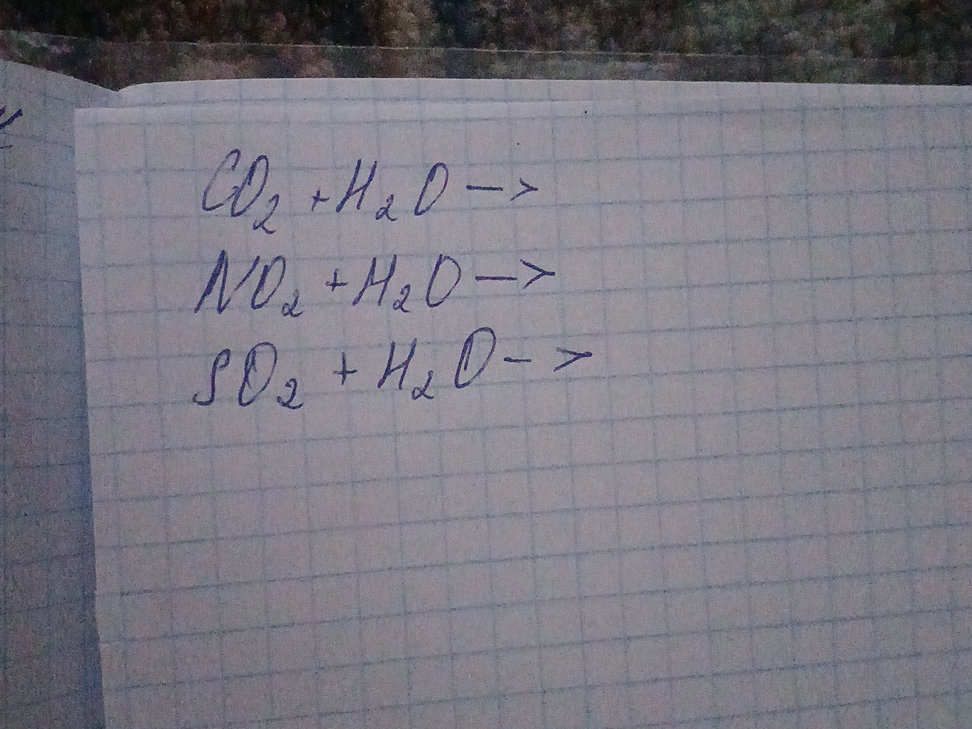 CO₂ + H₂O —>
NO₂ + H₂O —>
SO₂ + H₂O —>